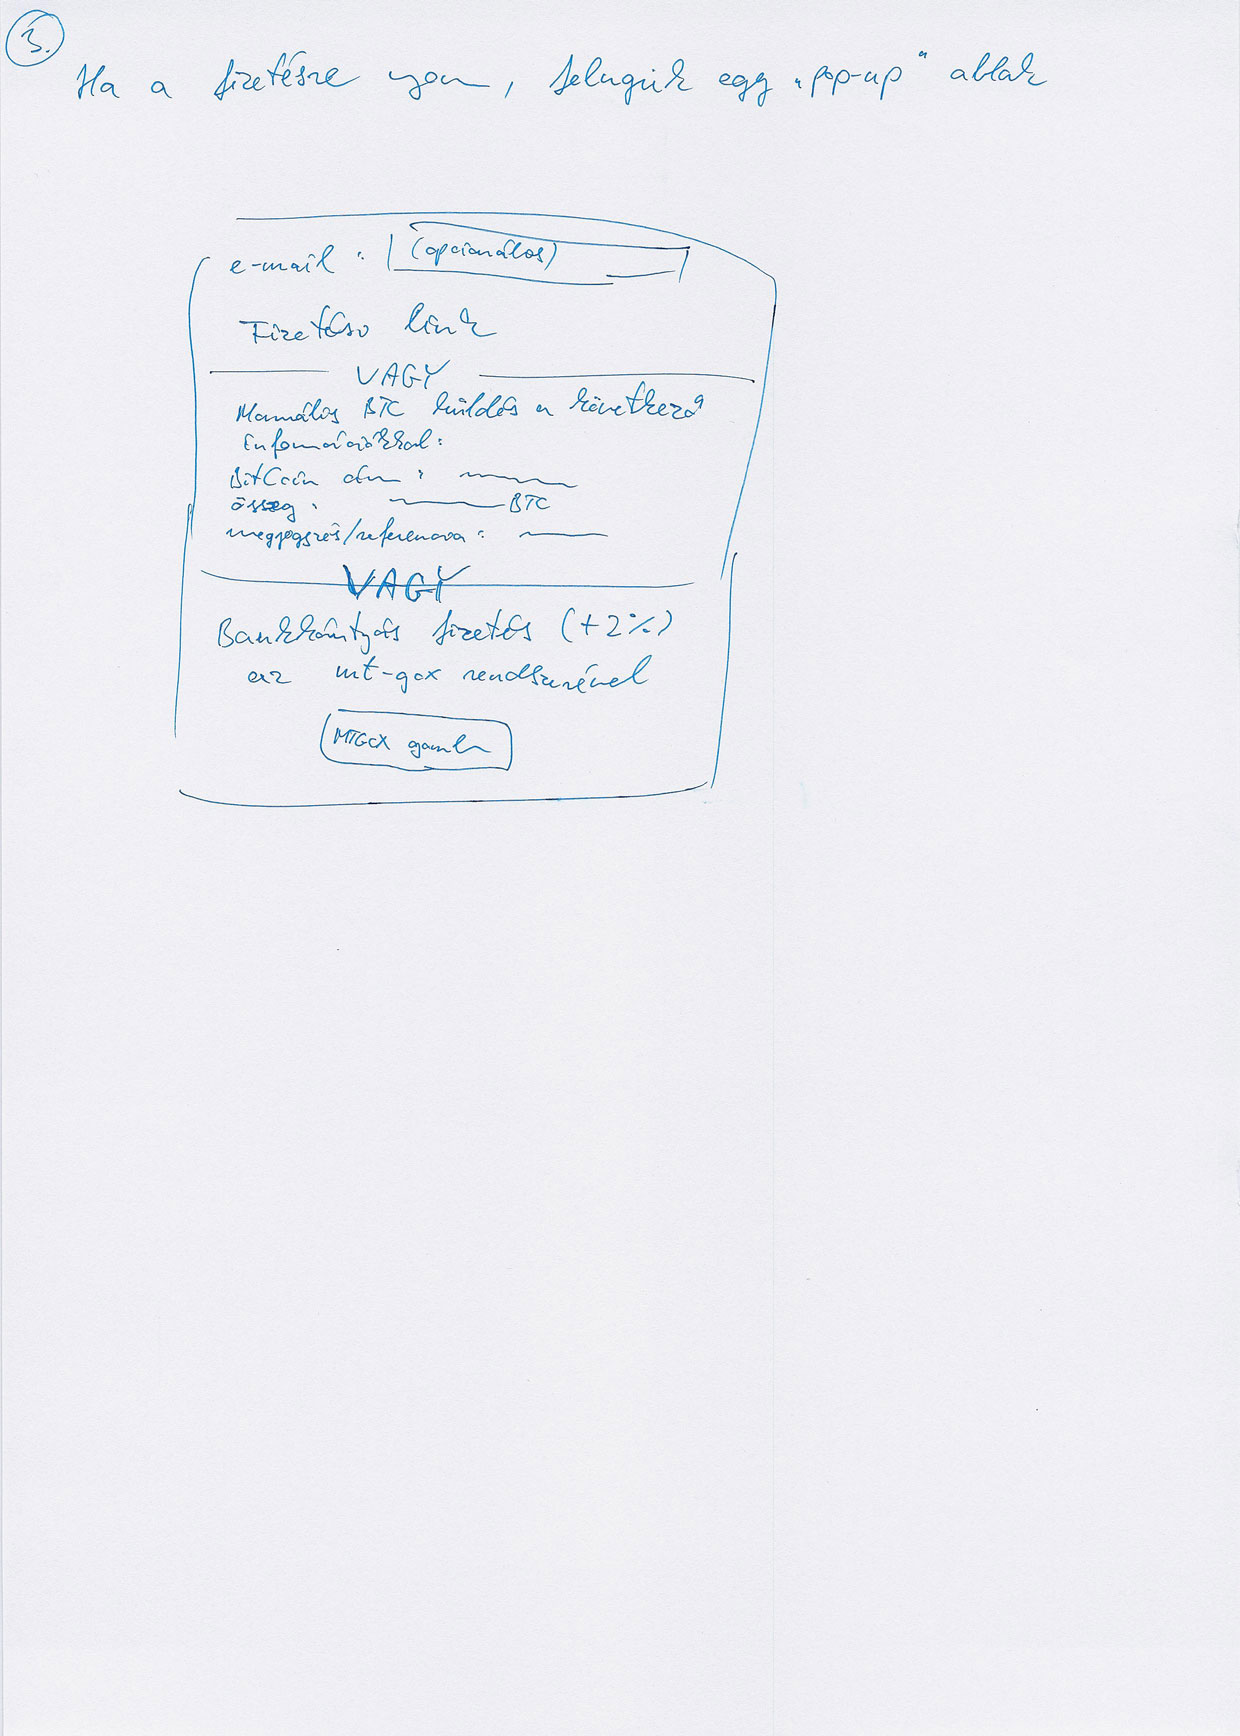 3.
Ha a fizetésre nyom, felugrik egy „pop-up" ablak
e-mail : (opcionális)
Fizetési link
VAGY
Manuális BTC küldés a következő
információkkal:
BitCoin cím :
összeg : BTC
megjegyzés/referencia :
VAGY
Bankkártyás fizetés (+2%)
az mt-gox rendszerével
MTGOX gomb